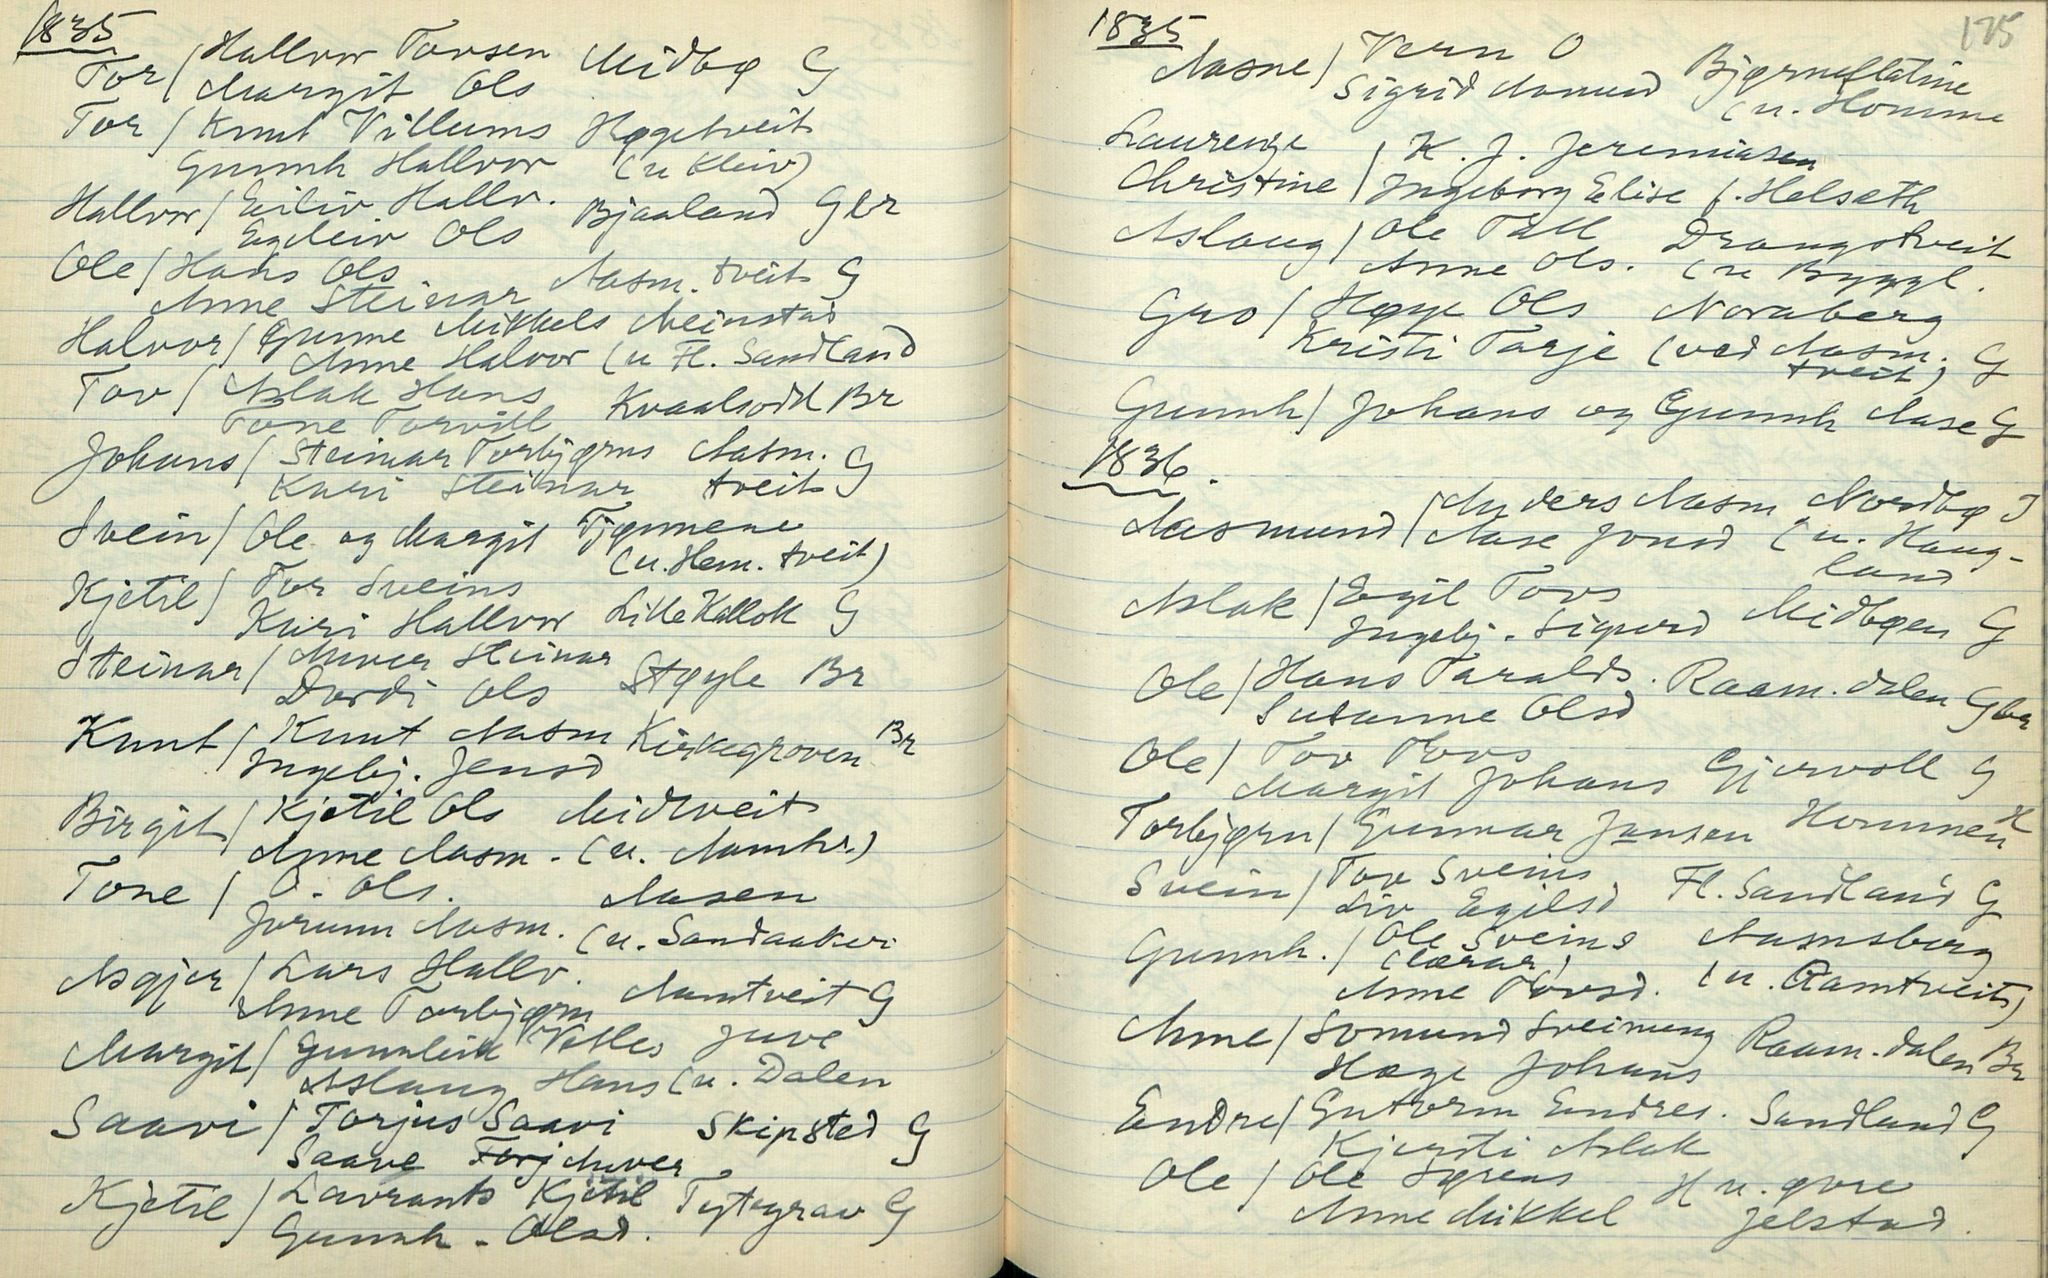 1835
Tor / Hallvor Tovsen Midbø G
Margit Ols
Tor / Knut Villums Høgetveit
Gunnh Hallvor (u Kleiv)
Hallvor / Eiliv Hallv. Bjaaland Gbr
Egeleiv Ols
Ole / Hans Ols Aasm. tveit G
Anne Steinar
Halvor / Gunne Mikkels Meinstad
Anne Halvor (u Fl. Sandland
Tov / Aslak Hans Kvaalsodd Br
Tone Torvill
Johans / Steinar Torbjørns Aasm.
Kari Steinar tveit G
Svein / Ole og Margit Tjønnene
(u. Hem. tveit)
Kjetil / Tor Sveins
Kari Hallvor Lille Kallok G
Steinar / Anver Steinar Støyle Br
Dordi Ols
Knut / Knut Aasm Kirkegroven Br
Ingebj. Jensd
Birgit / Kjetil Ols Midtveit
Anne Aasm. (u. Aamli.)
Tone / O. Ols. Aasen
Jorunn Aasm. (u. Sandaaker
Asgjer / Lars Hallv. Aamtveit G
Anne Torbjørn
Margit / Gunnleik Vetles Juve
Aslaug Hans (u. Dalen
Saavi / Torjus Saavi Skipsted G
Saave Torj Anver
Kjetil / Lavrants Kjetil Tytegrav G
Gunnh. Olsd.
175
1835
Aasne / Vern O Bjørneflatine
Sigrid Aamund (u. Homme
Laurenze / K. J. Jeremiasen
Christine / Ingeborg Elise f. Helseth
Aslaug / Ole Tall Drangstveit
Anne Ols. (u Byggl.
Gro / Høye Ols Noraberg
Kristi Tarje (ved Aasm. G
tveit)
Gunnh / Johans og Gunnh Aase G
1836.
Aasmund / Anders Aasm Nordbø I
Aase Jonsd (u. Haug-
land
Aslak / Egil Tovs
Ingebj. Sigurd Midbøen G
Ole / Hans Taralds. Raam. dalen Gbr
Susanne Olsd
Ole / Tov Tovs
Margit Johans Gjervoll G
Torbjørn / Gunnar Jansen Hommen H
Svein / Tov Sveins Fl. Sandland G
Liv Egilsd
Gunnh. / Ole Sveins Aamsberg
(Lærar)
Anne Tovsd. (u. Ramtveit)
Anne / Somund Sveinung Raam. dalen Br
Hæge Johans
Endre / Gutorm Endres. Sandland G
Kjersti Aslak
Ole / Ole Sørens H u. øvre
Anne Mikkel Jelstad.